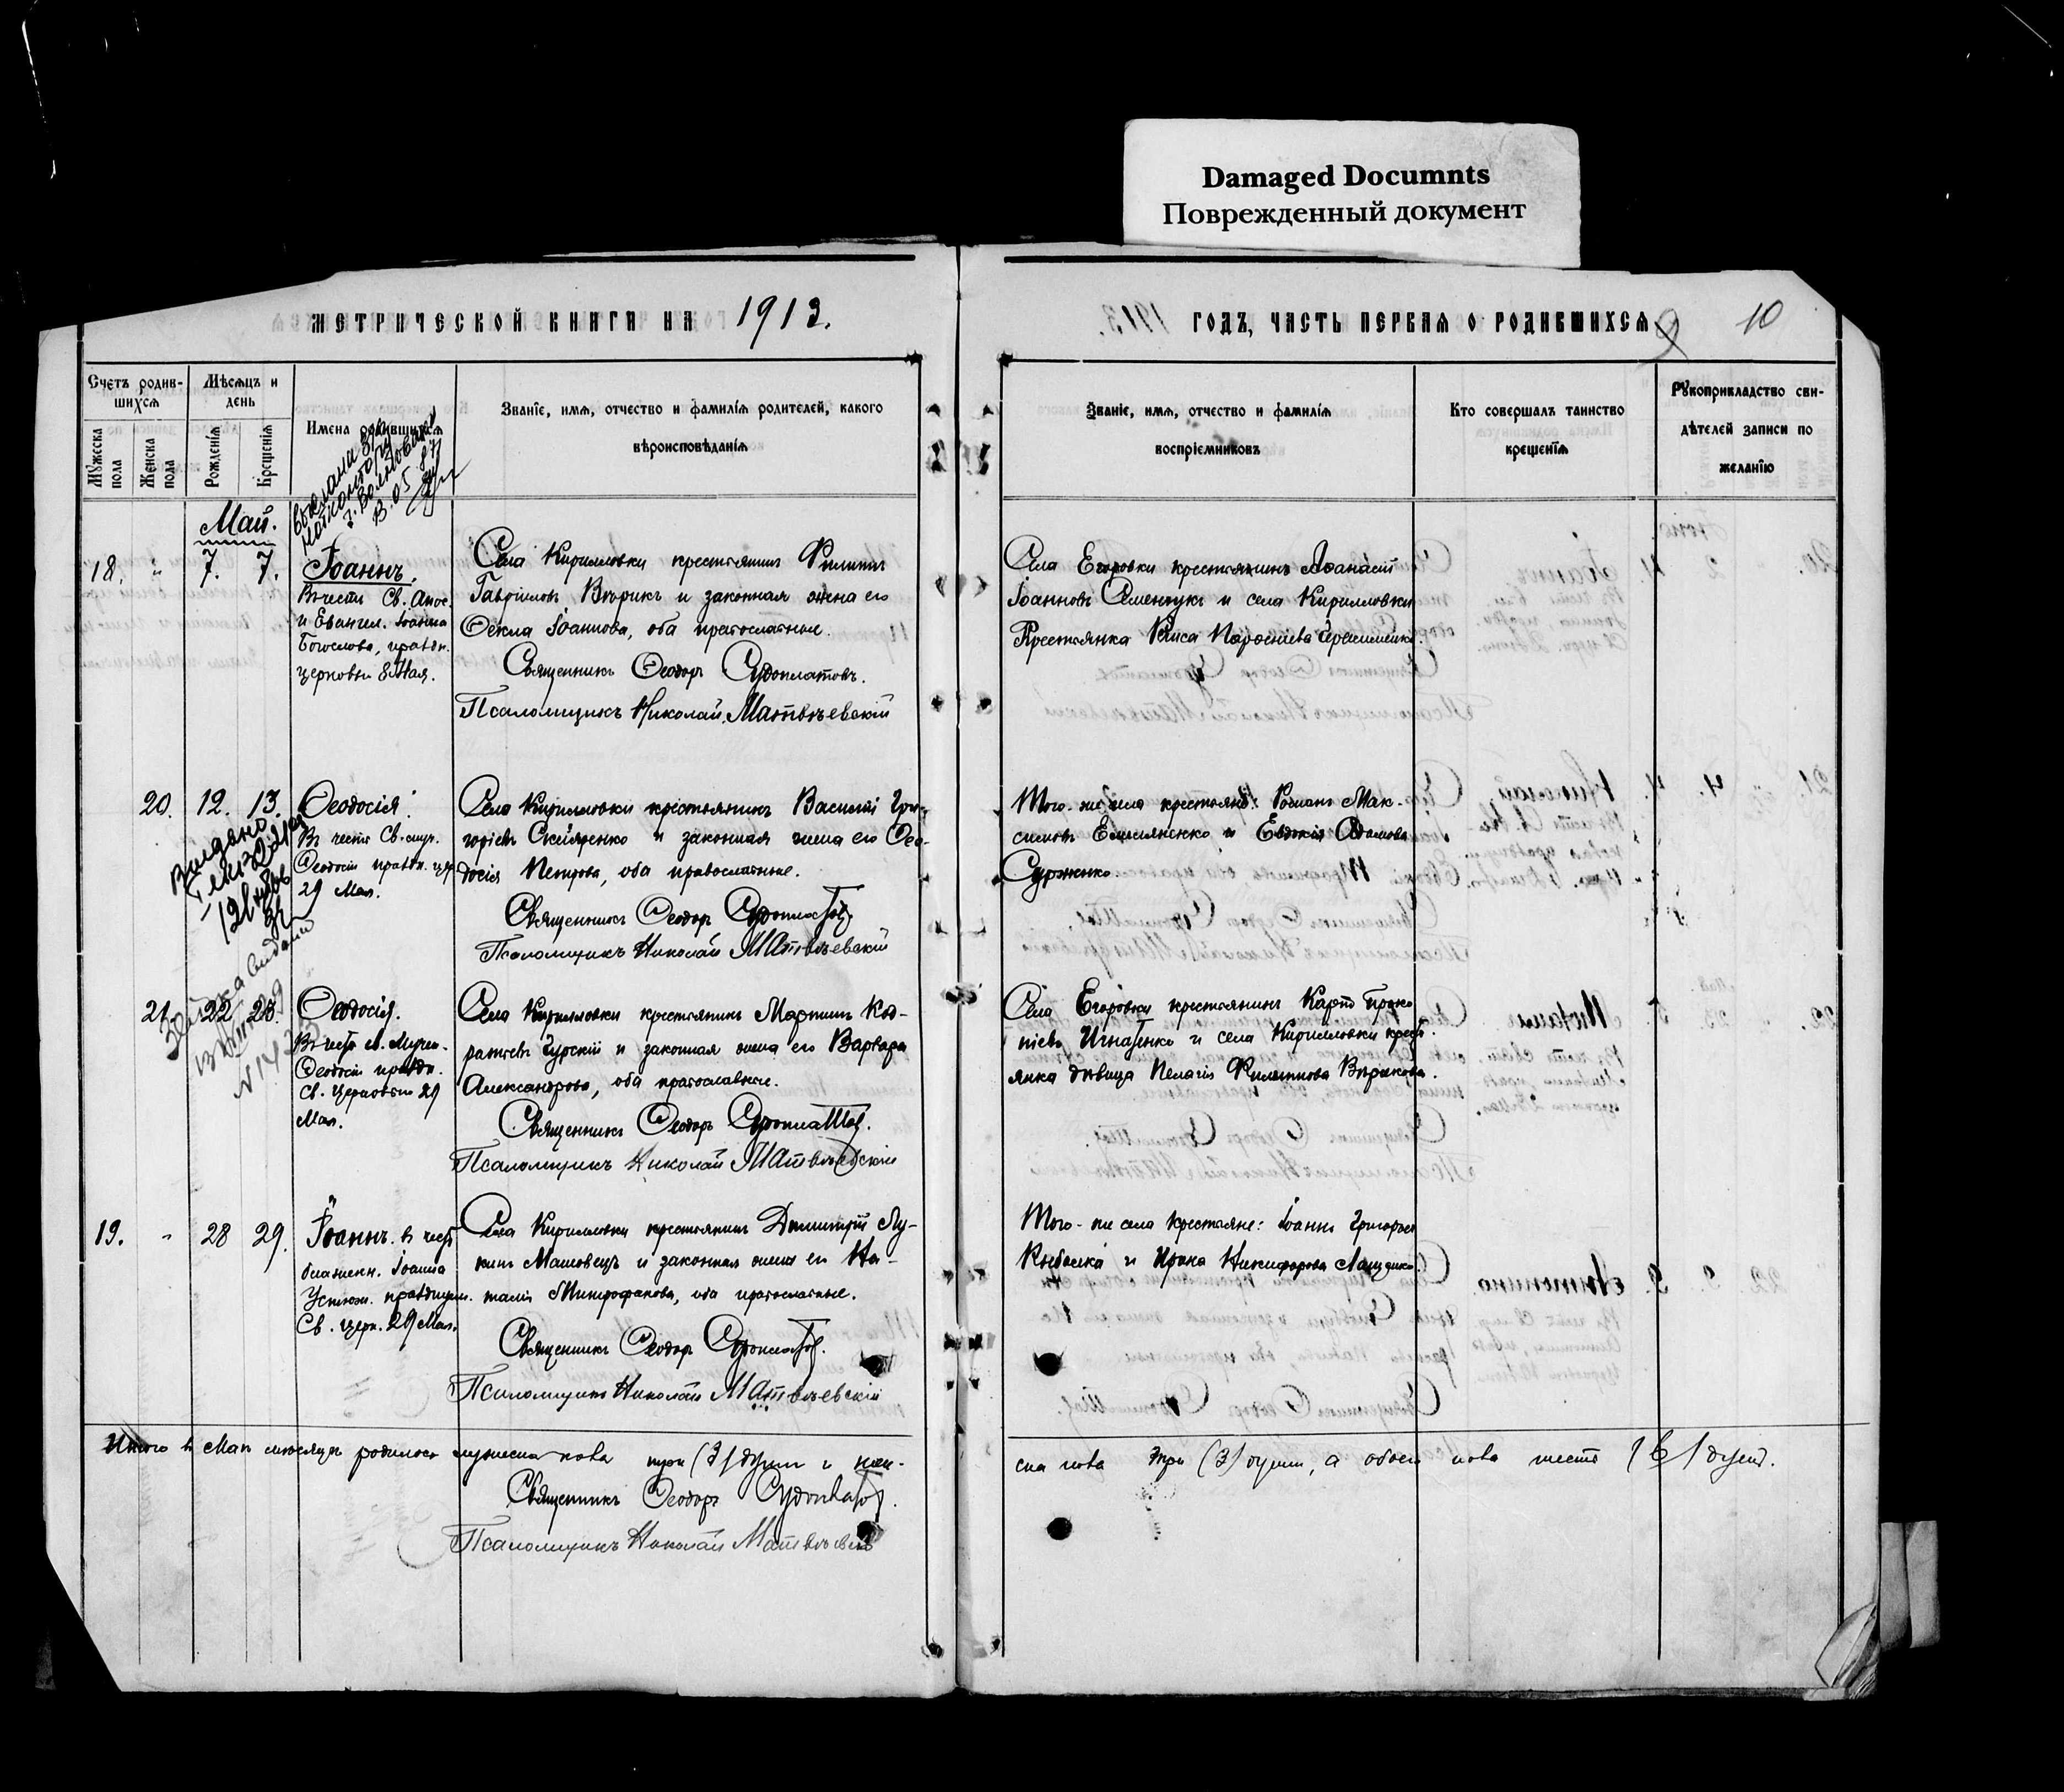 Damaged Documnts
Поврежденный документ
МЕТРИЧЕСКОЙ КНИГИ НА 1913.
ГОДЪ, ЧАСТЬ ПЕРВАЯ О РОДИВШИХСЯ
9 10
Счетъ родив-
шихся
Мѣсяцъ и
день
Мужеска
пола
Женска
пола
Рожденія
Крещенія
Имена родившихся
Званіе, имя, отчество и фамилія родителей, какого
вѣроисповѣданія
Званіе, имя, отчество и фамилія
воспріемниковъ
Кто совершалъ таинство
крещенія
Рукоприкладство сви-
дѣтелей записи по
желанію
Май.
18. " 7. 7. Іоаннъ.
Въ честь Св. Апос.
и Евангел. Іоанна
Богослова, праздн.
церковью 8 Мая.
Села Кирилловки крестьянинъ Филиппъ
Гавріиловъ Вюрикъ и законная жена его
Ѳекла Іоаннова, оба православные.
Священникъ Ѳеодоръ Судоплатовъ.
Псаломщикъ Николай Матвѣевскій
Села Егоровки крестьянинъ Аѳанасій
Іоанновъ Семенчукъ и села Кирилловки
Крестьянка Раиса
20. 12. 13. Ѳеодосія.
Въ честь Св. муч.
Ѳеодосіи праздн. цер.
29 Мая.
Выдано
Села Кирилловки крестьянинъ Василій Гри-
горіевъ Скляренко и законная жена его Ѳео-
досія Петрова, оба православные.
Священникъ Ѳеодоръ Судоплатов.
Псаломщикъ Николай Матвѣевскій
Того-же села крестьяне: Романъ Мак-
симовъ Емельяненко и Евдокія Адамова
Сурженко
21. 22 23. Ѳеодосія.
Въ честь св. Мучен.
Ѳеодосіи праздн.
Св. Церковью 29
Мая.
Села Кирилловки крестьянинъ Мартинъ Код-
ратьевъ Гурскій и законная жена его Варвара
Александрова, оба православные.
Священникъ Ѳеодоръ Судоплатов.
Псаломщикъ Николай Матвѣевскій
Села Егоровки крестьянинъ Карпъ Проко-
піевъ Игнатенко и села Кирилловки крест-
янка дѣвица Пелагія Филиппова Вюрикова.
19. " 28 29. Іоаннъ. въ честь
блаженн. Іоанна
Устюж. празднуем.
Св. церк. 29 Мая.
Села Кирилловки крестьянинъ Димитрій Лу-
кинъ Машовецъ и законная жена его На-
талія Митрофанова, оба православные.
Священникъ Ѳеодоръ Судоплатов.
Псаломщикъ Николай Матвѣевскій
Того-же села крестьяне: Іоаннъ Григорьев
и Ирина Никифорова
Итого въ Маѣ мѣсяцѣ родилось мужеска пола три (3) души и жен-
ска пола три (3) души, а обоего пола шесть (6) душъ.
Священникъ Ѳеодоръ Судоплатов.
Псаломщикъ Николай Матвѣевскій